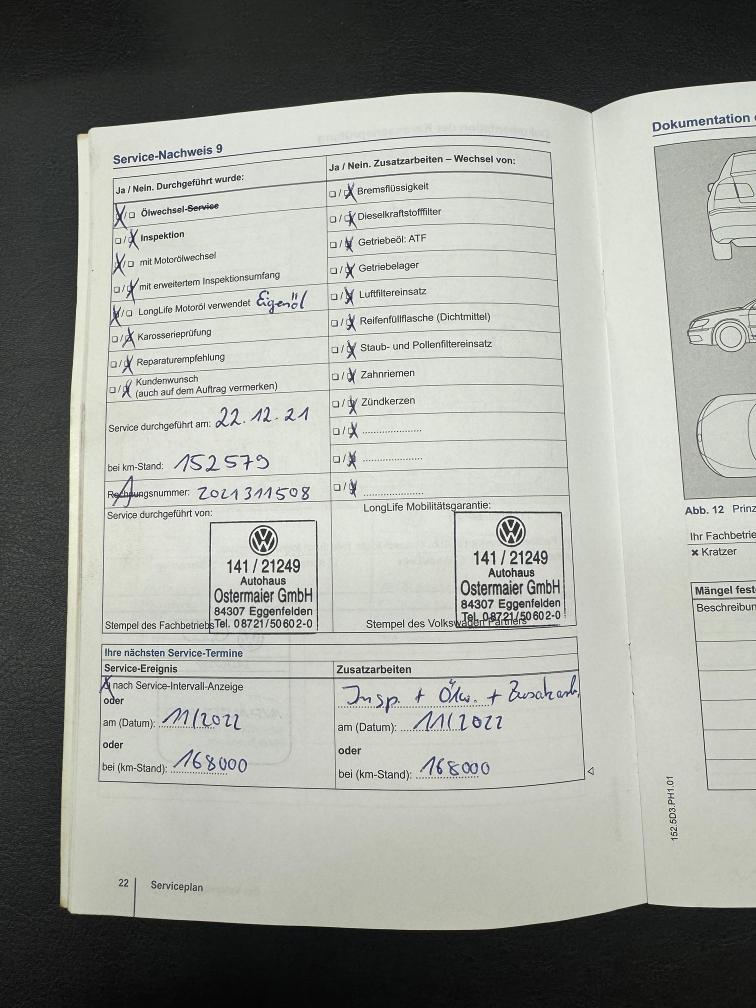 Service-Nachweis 9
Ja / Nein. Durchgeführt wurde:
Ölwechsel-Service
Inspektion
mit Motorölwechsel
mit erweitertem Inspektionsumfang
LongLife Motoröl verwendet Eigenöl
Karosserieprüfung
Reparaturempfehlung
Kundenwunsch
(auch auf dem Auftrag vermerken)
Service durchgeführt am: 22.12.21
bei km-Stand: 152579
Rechnungsnummer: 2021311508
Service durchgeführt von:
141 / 21249
Autohaus
Ostermaier GmbH
84307 Eggenfelden
Tel. 08721/50602-0
Stempel des Fachbetriebs
Ja / Nein. Zusatzarbeiten – Wechsel von:
Bremsflüssigkeit
Dieselkraftstofffilter
Getriebeöl: ATF
Getriebelager
Luftfiltereinsatz
Reifenfüllflasche (Dichtmittel)
Staub- und Pollenfiltereinsatz
Zahnriemen
Zündkerzen
LongLife Mobilitätsgarantie:
141 / 21249
Autohaus
Ostermaier GmbH
84307 Eggenfelden
Tel. 08721/50602-0
Stempel des Volkswagen Partners
Ihre nächsten Service-Termine
Service-Ereignis
nach Service-Intervall-Anzeige
oder
am (Datum): 11/2022
oder
bei (km-Stand): 168000
Zusatzarbeiten
Insp. + Ölw. + Zusatzarb.
am (Datum): 11/2022
oder
bei (km-Stand): 168000
22 Serviceplan
Dokumentation
Abb. 12 Prinz
Ihr Fachbetrie
× Kratzer
Mängel fest
Beschreibun
152.5D3.PH1.01